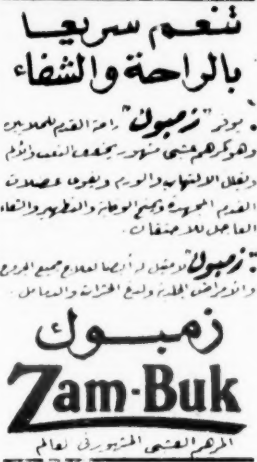 تنعم سريعا
بالراحة والشفاء
يوفر "زمبوك" راحة القدم للملايين
وهو كمرهم عشبي مشهور يخفف التعب والألم
ويقلل الالتهاب والورم ويقوي عضلات
القدم المجهدة ويمنح الوقاية والتطهير والشفاء
العاجل للاحتقان.
"زمبوك" لا مثيل له أيضا لعلاج جميع الجروح
والأمراض الجلدية ولدغ الحشرات والدمامل.
زمبوك
Zam-Buk
المرهم العشبي المشهور في العالم